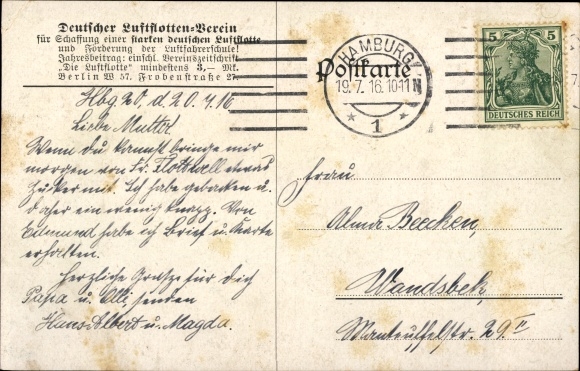 Deutscher Luftflotten=Verein
für Schaffung einer starken deutschen Luftflotte
und Förderung der Luftfahrerschule!
Jahresbeitrag: einschl. Vereinszeitschrift
"Die Luftflotte" mindestens 3,— Mk.
Berlin W 57, Frobenstraße 27.
Postkarte
HAMBURG
19.7.16.10-11 N
* 1 *
5 5
DEUTSCHES REICH
Hbg 20, d. 20.7.16
Liebe Mutter
Wenn du kannst bringe mir
morgen von Fr. etwas
Zucker mit. Ich habe gebacken u.
daher ein wenig knapp. Von
Edmund habe ich Brief u. Karte
erhalten.
Herzliche Grüße für dich
Papa u. Olli, senden
Hans Albert u. Magda.
Frau
Alma Beecken,
Wandsbek,
Manteuffelstr. 29 II